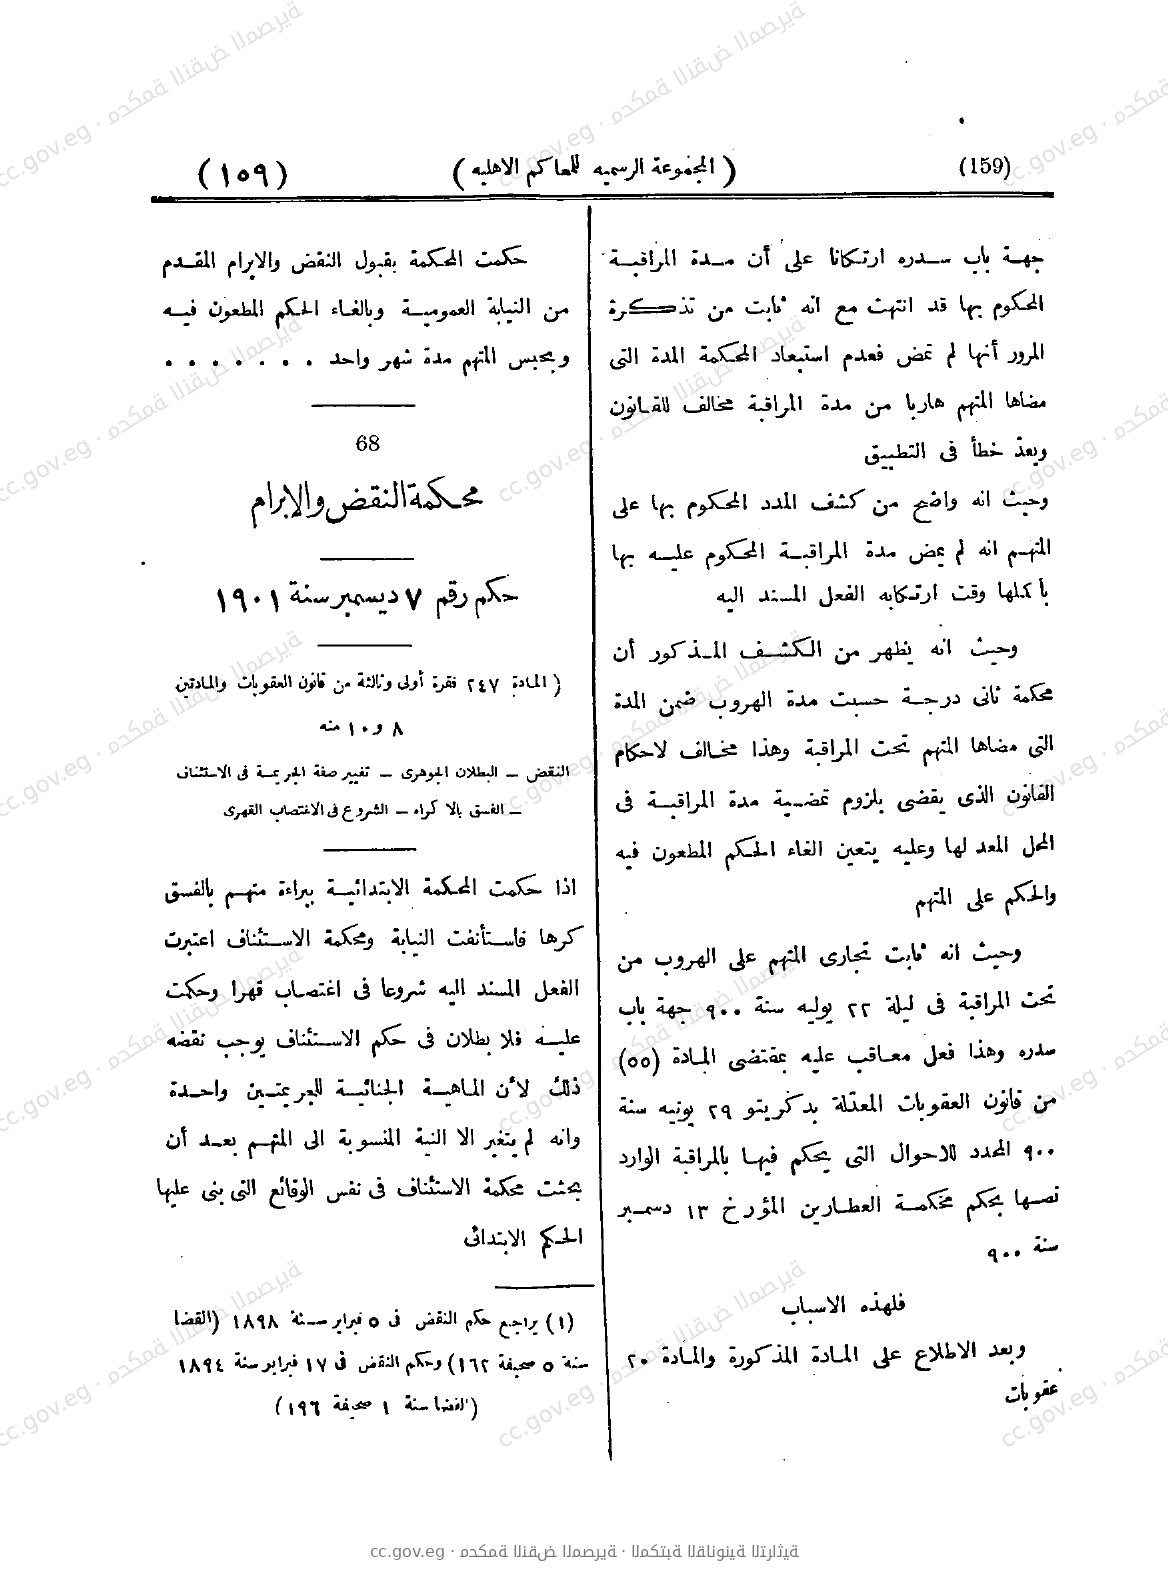 (159)
( المجموعة الرسميه للمحاكم الاهليه )
( ١٥٩ )
جهة باب سدره ارتكانا على أن مدة المراقبة
المحكوم بها قد انتهت مع انه ثابت من تذكرة
المرور أنها لم تمض فعدم استبعاد المحكمة المدة التى
مضاها المتهم هاربا من مدة المراقبة مخالف للقانون
ويعدّ خطأ فى التطبيق
وحيث انه واضح من كشف المدد المحكوم بها على
المتهم انه لم يمض مدة المراقبة المحكوم عليه بها
بأكملها وقت ارتكابه الفعل المسند اليه
وحيث انه يظهر من الكشف المذكور أن
محكمة ثانى درجة حسبت مدة الهروب ضمن المدة
التى مضاها المتهم تحت المراقبة وهذا مخالف لاحكام
القانون الذى يقضى بلزوم تمضية مدة المراقبة فى
المحل المعد لها وعليه يتعين الغاء الحكم المطعون فيه
والحكم على المتهم
وحيث انه ثابت تجارى المتهم على الهروب من
تحت المراقبة فى ليلة ٢٢ يوليه سنة ٩٠٠ جهة باب
سدره وهذا فعل معاقب عليه بمقتضى المادة (٥٥)
من قانون العقوبات المعدّلة بدكريتو ٢٩ يونيه سنة
٩٠٠ المحدد للاحوال التى يحكم فيها بالمراقبة الوارد
نصها بحكم محكمة العطارين المؤرخ ١٣ دسمبر
سنة ٩٠٠
فلهذه الاسباب
وبعد الاطلاع على المادة المذكورة والمادة ٢٠
عقوبات
حكمت المحكمة بقبول النقض والابرام المقدم
من النيابة العمومية وبالغاء الحكم المطعون فيه
وبحبس المتهم مدة شهر واحد . . . . . . .
68
محكمة النقض والابرام
حكم رقم ٧ ديسمبر سنة ١٩٠١
( المادة ٢٤٧ فقرة أولى وثالثة من قانون العقوبات والمادتين
٨ و ١٠ منه
النقض – البطلان الجوهرى – تغيير صفة الجريمة فى الاستئناف
– الفسق بالاكراه – الشروع فى الاغتصاب القهرى
اذا حكمت المحكمة الابتدائية ببراءة متهم بالفسق
كرها فاستأنفت النيابة ومحكمة الاستئناف اعتبرت
الفعل المسند اليه شروعا فى اغتصاب قهرا وحكمت
عليه فلا بطلان فى حكم الاستئناف يوجب نقضه
ذلك لأن الماهية الجنائية للجريمتين واحدة
وانه لم يتغير الا النية المنسوبة الى المتهم بعد أن
بحثت محكمة الاستئناف فى نفس الوقائع التى بنى عليها
الحكم الابتدائى
(١) يراجع حكم النقض فى ٥ فبراير سنة ١٨٩٨ (القضا
سنة ٥ صحيفة ١٦٢) وحكم النقض فى ١٧ فبراير سنة ١٨٩٤
(القضا سنة ١ صحيفة ١٩٦)
cc.gov.eg · محكمة النقض المصرية · المكتبة القانونية التراثية